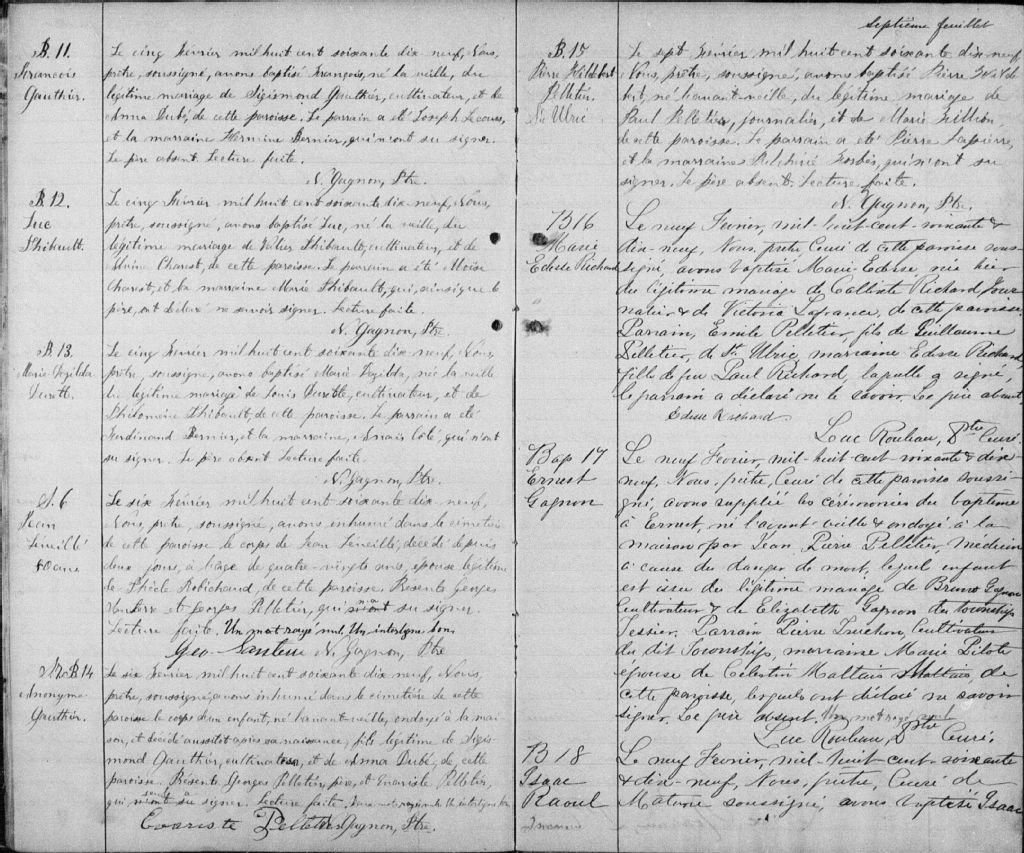 B. 11.
François
Gauthier.
Le cinq Février mil huit cent soixante dix neuf, Nous,
prêtre, soussigné, avons baptisé François, né la veille, du
légitime mariage de Sigismond Gauthier, cultivateur, et de
Anna Dubé, de cette paroisse. Le parrain a été Joseph
et la marraine Hermine Bernier, qui n'ont su signer.
Le père absent. Lecture faite.
N. Gagnon, Ptre.
B. 12.
Luc
Thibault.
Le cinq Février mil huit cent soixante dix neuf, Nous,
prêtre, soussigné, avons baptisé Luc, né la veille, du
légitime mariage de Thibault, cultivateur, et de
Charest, de cette paroisse. Le parrain a été Moïse
Charest, et la marraine Marie Thibault, qui, ainsi que le
père, ont déclaré ne savoir signer. Lecture faite.
N. Gagnon, Ptre.
B. 13.
Marie
Le cinq Février mil huit cent soixante dix neuf, Nous,
prêtre, soussigné, avons baptisé Marie née la veille
du légitime mariage de Louis cultivateur, et de
Philomène Thibault, de cette paroisse. Le parrain a été
Ferdinand Bernier, et la marraine, Anais Coté, qui n'ont
su signer. Le père absent Lecture faite.
N. Gagnon, Ptre.
S. 6
Jean
80 ans
Le six Février mil huit cent soixante dix neuf,
Nous, prêtre, soussigné, avons inhumé dans le cimetière
de cette paroisse le corps de Jean décédé depuis
deux jours, à l'âge de quatre-vingts ans, époux légitime
de Thècle Robichaud, de cette paroisse. Présents Georges
et Georges Pelletier, qui su signer.
Lecture faite. Un mot rayé nul. Un interligne bon
Geo N. Gagnon, Ptre
B. 14
Anonyme
Gauthier.
Le six Février mil huit cent soixante dix neuf, Nous,
prêtre, soussigné, avons inhumé dans le cimetière de cette
paroisse le corps d'un enfant, né l'avant-veille, ondoyé à la mai
son, et décédé aussitôt après sa naissance, fils légitime de Sigis
mond Gauthier, cultivateur, et de Anna Dubé, de cette
paroisse. Présents Georges Pelletier, père, et Evariste Pelletier,
qui su signer. Lecture faite.
Evariste Pelletier N. Gagnon, Ptre.
Septième feuillet
B. 15
Pierre
Pelletier.
St Ulric
Le sept Février mil huit cent soixante dix neuf,
Nous, prêtre, soussigné, avons baptisé Pierre
né l'avant-veille, du légitime mariage de
Paul Pelletier, journalier, et de Marie
de cette paroisse. Le parrain a été Pierre Lapierre,
et la marraine Forbes, qui n'ont su
signer. Le père absent. Lecture faite.
N. Gagnon, Ptre.
B16
Marie
Edesse Richard
Le neuf Fevrier, mil-huit-cent-soixante &
dix-neuf, Nous, prêtre, Curé de cette paroisse sous-
signé, avons baptisé Marie Edesse, née hier
du légitime mariage de Calixte Richard, Jour
nalier & de Victoria Lafrance, de cette paroisse.
Parrain, Emile Pelletier, fils de Guillaume
Pelletier, de St. Ulric, marraine Edesse Richard,
fille de feu Paul Richard, laquelle a signé,
le parrain a déclaré ne le savoir. Le père absent.
Edesse Richard
Luc Rouleau, Ptre Curé.
Bap 17
Ernest
Gagnon
Le neuf Fevrier, mil-huit-cent-soixante & dix
neuf, Nous, prêtre, Curé de cette paroisse soussi-
gné, avons suppléé les cérémonies du baptême
à Ernest, né l'avant veille & ondoyé à la
maison par Jean Pierre Pelletier, Médecin
à cause du danger de mort, lequel enfant
est issu du légitime mariage de Bruno Gagnon
Cultivateur & de Elizabeth Gagnon du township
Tessier. Parrain Pierre Truchon, Cultivateur
du dit Township, marraine Marie Pilote
épouse de Célestin Maltais Maltais, de
cette paroisse, lesquels ont déclaré ne savoir
signer. Le père absent. Un mot rayé nul
Luc Rouleau, Ptre Curé.
B 18
Isaac
Raoul
Le neuf Fevrier, mil-huit-cent-soixante
& dix-neuf, Nous, prêtre, Curé de
Matane soussigné, avons baptisé Isaac